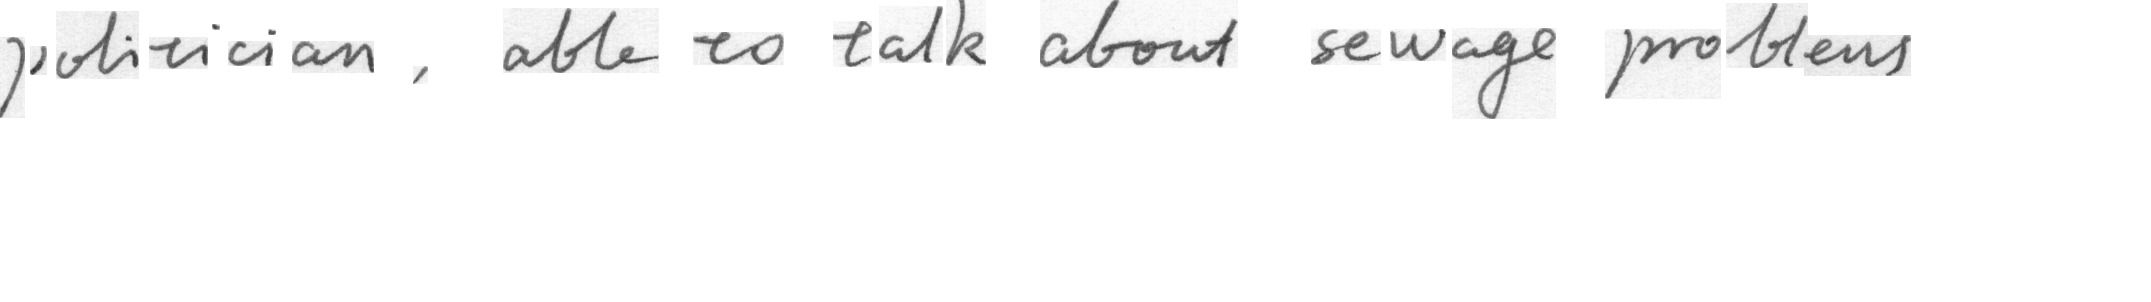 politician, able to talk about sewage problems